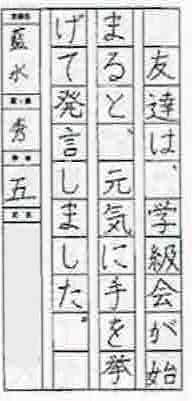 友達は、学級会が始
まると、元気に手を挙
げて発言しました。
藍水
秀
五